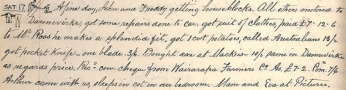 SAT 17 A fine day, John and Freddy getting house blocks. All others motored to
Dannevirke, got some repairs done to car, got suit of clothes, paid £7-12-6
to Mr. Ross he makes a splendid fit, got 1 cwt potatoes, called Australians 19/-
got pocket knife one blade 3/-. Bought one at Mackies 14/- same in Dannevirke
as regards price. Rec. cow cheque from Wairarapa Farmers Co. As. £7-2.
Arthur come with us sleeps in cot in our bedroom Mam and Eva at Pictures.